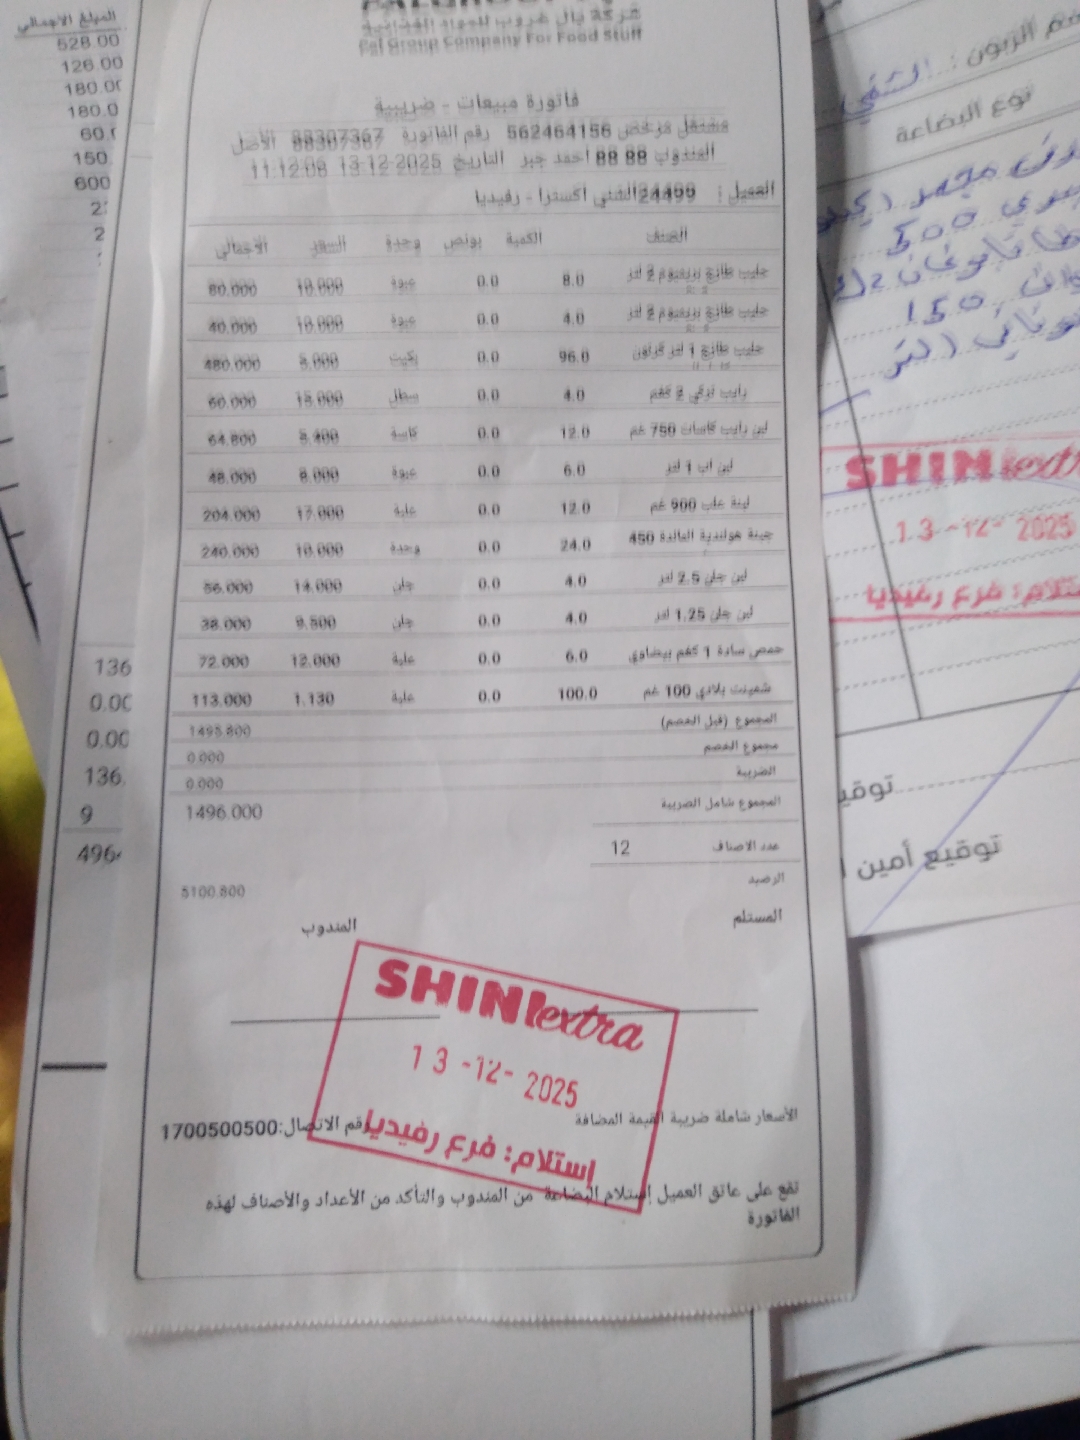 شركة بال غروب للمواد الغذائية
Pal Group Company For Food Stuff
فاتورة مبيعات - ضريبية
مشتغل مرخص 562464156 رقم الفاتورة 88307367 الأصل
المندوب 88 88 أحمد جبر التاريخ 13-12-2025 11:12:06
العميل : 24499 الشني اكسترا - رفيديا
الصنف الكمية بونص وحدة السعر الاجمالي
حليب طازج بريميوم 2 لتر 8.0 0.0 عبوة 10.000 80.000
حليب طازج بريميوم 2 لتر 4.0 0.0 عبوة 10.000 40.000
حليب طازج 1 لتر كرتون 96.0 0.0 بكيت 5.000 480.000
رايب تركي 2 كغم 4.0 0.0 سطل 15.000 60.000
لبن رايب كاسات 750 غم 12.0 0.0 كاسة 5.400 64.800
لبن اب 1 لتر 6.0 0.0 عبوة 8.000 48.000
لبنة علب 900 غم 12.0 0.0 علبة 17.000 204.000
جبنة هولندية المائدة 450 24.0 0.0 وحدة 10.000 240.000
لبن جلن 2.5 لتر 4.0 0.0 جلن 14.000 56.000
لبن جلن 1.25 لتر 4.0 0.0 جلن 9.500 38.000
حمص سادة 1 كغم بيضاوي 6.0 0.0 علبة 12.000 72.000
شمينت بلادي 100 غم 100.0 0.0 علبة 1.130 113.000
المجموع (قبل الخصم) 1495.800
مجموع الخصم 0.000
الضريبة 0.000
المجموع شامل الضريبة 1496.000
عدد الاصناف 12
الرصيد 5100.800
المستلم المندوب
SHINI extra
13-12-2025
إستلام: فرع رفيديا
الأسعار شاملة ضريبة القيمة المضافة رقم الاتصال:1700500500
تقع على عاتق العميل إستلام البضاعة من المندوب والتأكد من الأعداد والأصناف لهذه
الفاتورة
المبلغ الاجمالي
528.00
126.00
180.00
180.0
60.
150.
600
136
0.00
0.00
136.
9
496
الزبون : الشني
نوع البضاعة
500
150
SHINI extra
13-12-2025
رفيديا
توقيع أمين